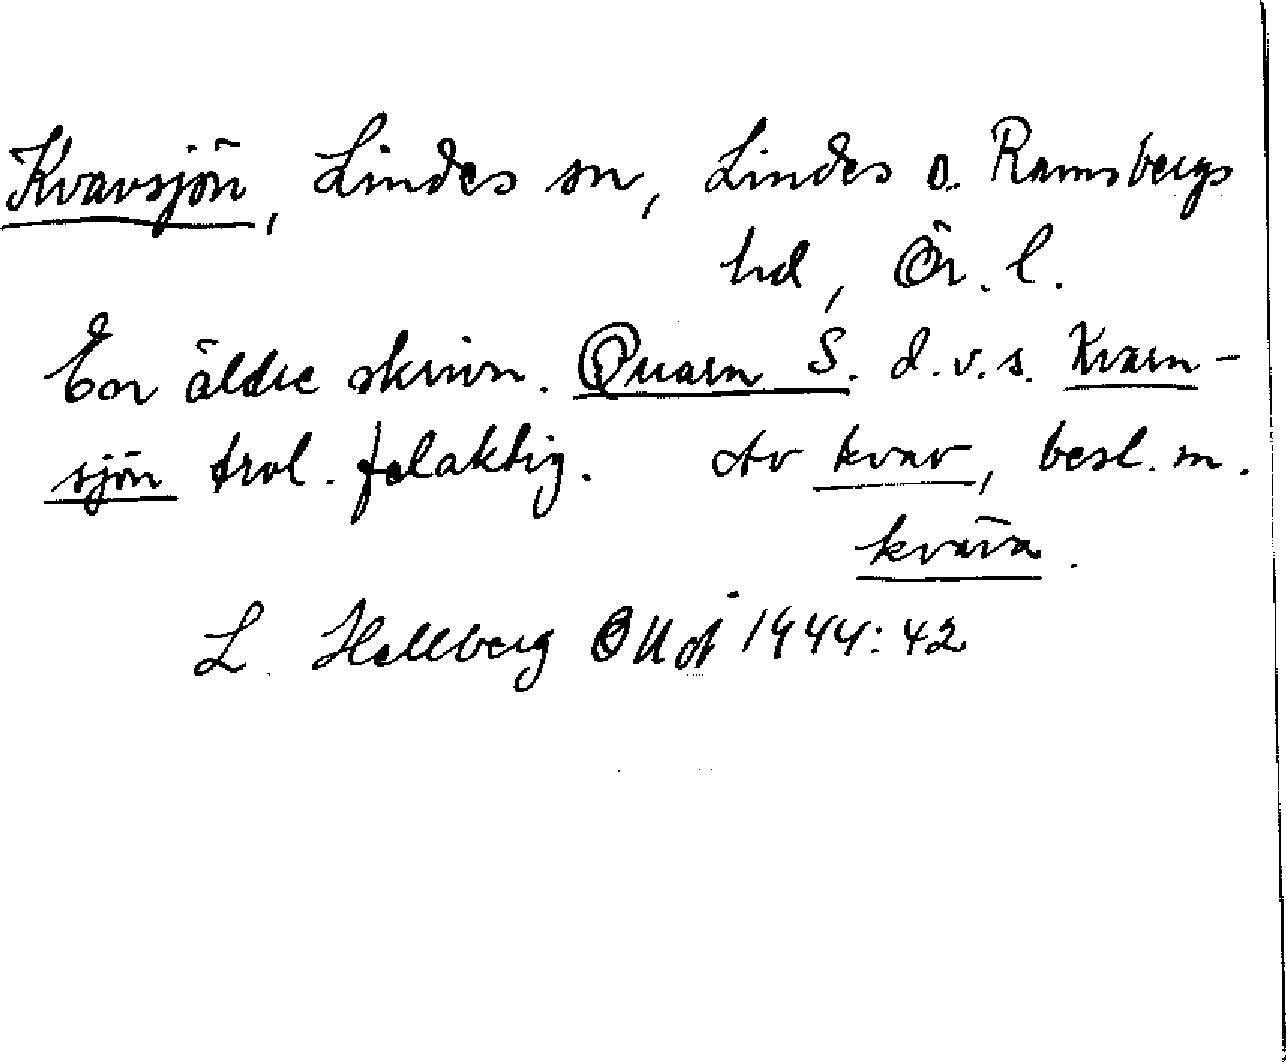 Kvavsjön, Lindes sn, Lindes o. Ramsbergs
hd, Ör. l.
En äldre skrivn. Quarn S. d.v.s. Kvarn-
sjön trol. felaktig. Av kvav, besl. m.
kväva.
L. Hellberg 1944:42